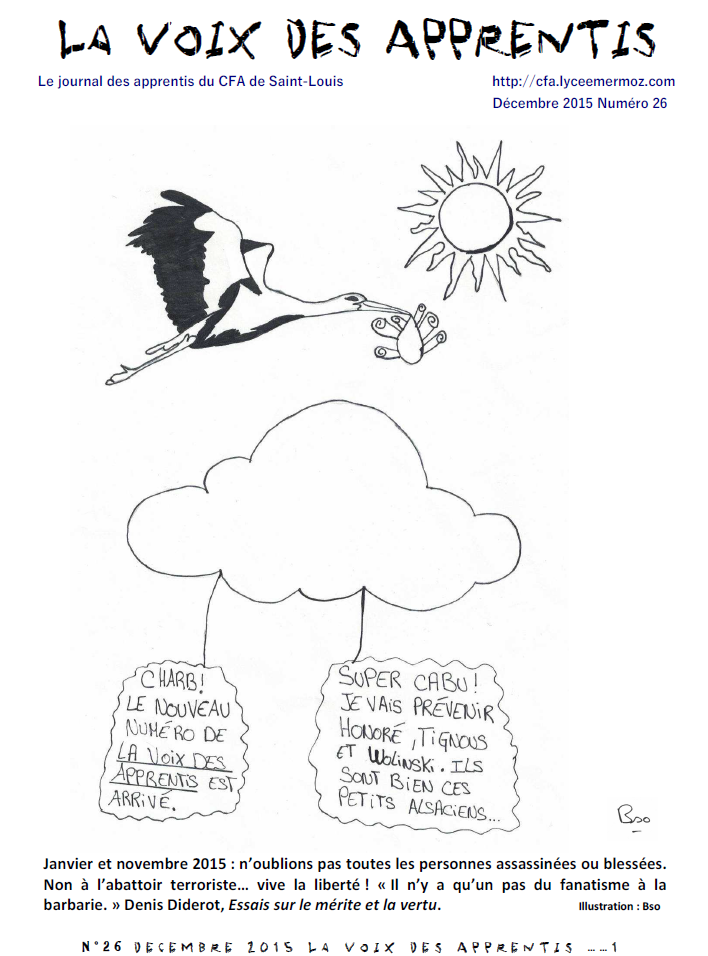 LA VOIX DES APPRENTIS
Le journal des apprentis du CFA de Saint-Louis
http://cfa.lyceemermoz.com
Décembre 2015 Numéro 26
CHARB!
LE NOUVEAU
NUMÉRO DE
LA VOIX DES
APPRENTIS EST
ARRIVÉ.
SUPER CABU!
JE VAIS PRÉVENIR
HONORÉ, TIGNOUS
ET WOLINSKI. ILS
SONT BIEN CES
PETITS ALSACIENS...
Bso
Janvier et novembre 2015 : n'oublions pas toutes les personnes assassinées ou blessées.
Non à l'abattoir terroriste… vive la liberté ! « Il n'y a qu'un pas du fanatisme à la
barbarie. » Denis Diderot, Essais sur le mérite et la vertu.
Illustration : Bso
N°26 DECEMBRE 2015 LA VOIX DES APPRENTIS ……1